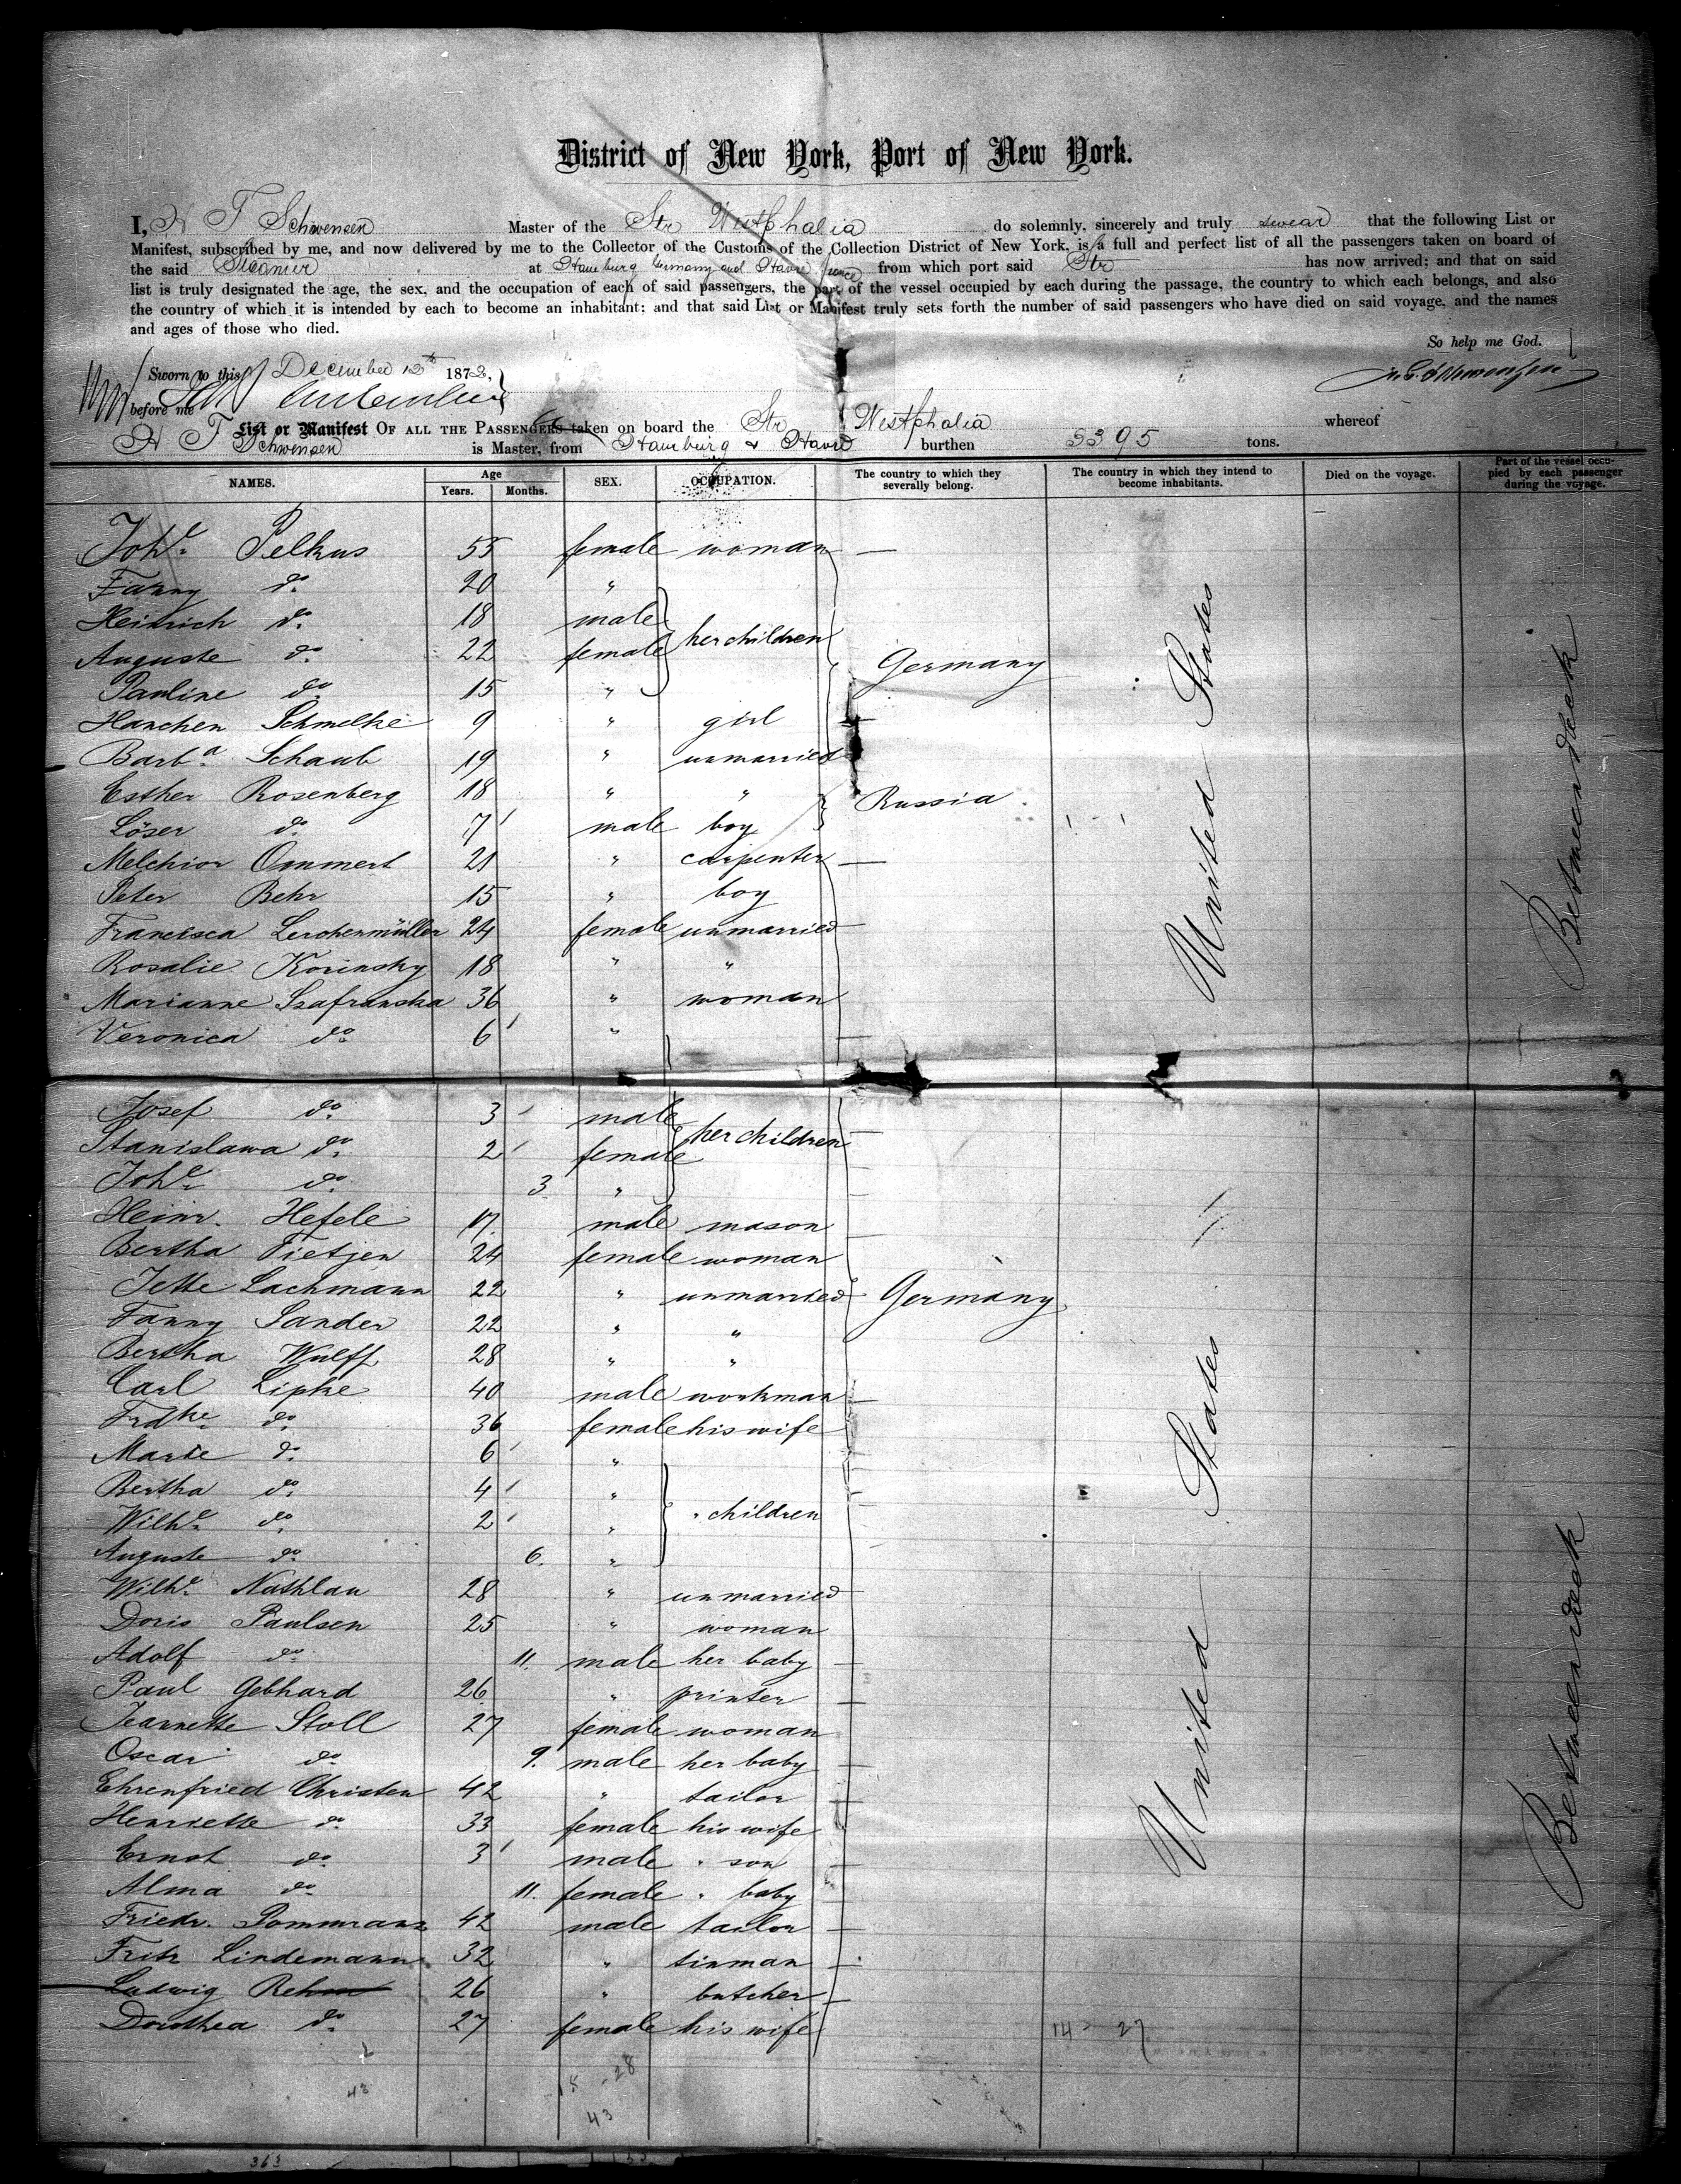 District of New York, Port of New York.
I, H T Schwensen Master of the Str Westphalia do solemnly, sincerely and truly swear that the following List or
Manifest, subscribed by me, and now delivered by me to the Collector of the Customs of the Collection District of New York, is a full and perfect list of all the passengers taken on board of
the said Steamer at Hamburg Germany and Havre France from which port said Str has now arrived; and that on said
list is truly designated the age, the sex, and the occupation of each of said passengers, the part of the vessel occupied by each during the passage, the country to which each belongs, and also
the country of which it is intended by each to become an inhabitant; and that said List or Manifest truly sets forth the number of said passengers who have died on said voyage, and the names
and ages of those who died.
So help me God.
Sworn to this December 187
before me
List or Manifest OF ALL THE PASSENGERS taken on board the Str Westphalia whereof
H T Schwensen is Master, from Hamburg & Havre burthen 3395 tons.
NAMES. Age Years. Months. SEX. OCCUPATION. The country to which they severally belong. The country in which they intend to become inhabitants. Died on the voyage. Part of the vessel occupied by each passenger during the voyage.
Johe. Pelkus 55 female woman
Fanny do 20 "
Heinrich do 18 male her children
Auguste do 22 female Germany
Pauline do 15 "
Hanchen Schmelke 9 " girl
Barba. Schaub 19 " unmarried
Esther Rosenberg 18 " " Russia
Löser do 7 male boy
Melchior Ommert 21 " carpenter
Peter Behr 15 " boy
Francisca Lerchenmüller 24 female unmarried
Rosalie Korinsky 18 " "
Marianne Szafranska 36 " woman
Veronica do 6 "
United States
Betweendeck
Josef do 3 male
Stanislawa do 2 female her children
Johe. do 3 "
Heinr. Hefele 17 male mason
Bertha Tietjen 24 female woman
Jette Lachmann 22 " unmarried Germany
Fanny Sander 22 " "
Bertha Wulff 28 " "
Carl Lipke 40 male workman
Frdke do 36 female his wife
Marie do 6 "
Bertha do 4 "
Wilhe. do 2 " " children
Auguste do 6 "
Wilhe. Nathlau 28 " unmarried
Doris Paulsen 25 " woman
Adolf do 11 male her baby
Paul Gebhard 26 " printer
Jeannette Stoll 27 female woman
Oscar do 9 male her baby
Ehrenfried Christen 42 " tailor
Henriette do 33 female his wife
Ernst do 3 male " son
Alma do 11 female " baby
Friedr. Pommranz 42 male tailor
Fritz Lindemann 32 " tinman
Ludwig Rehm 26 " butcher
Dorothea do 27 female his wife
United States
Betweendeck
14 - 27
15 - 28
43
43
363